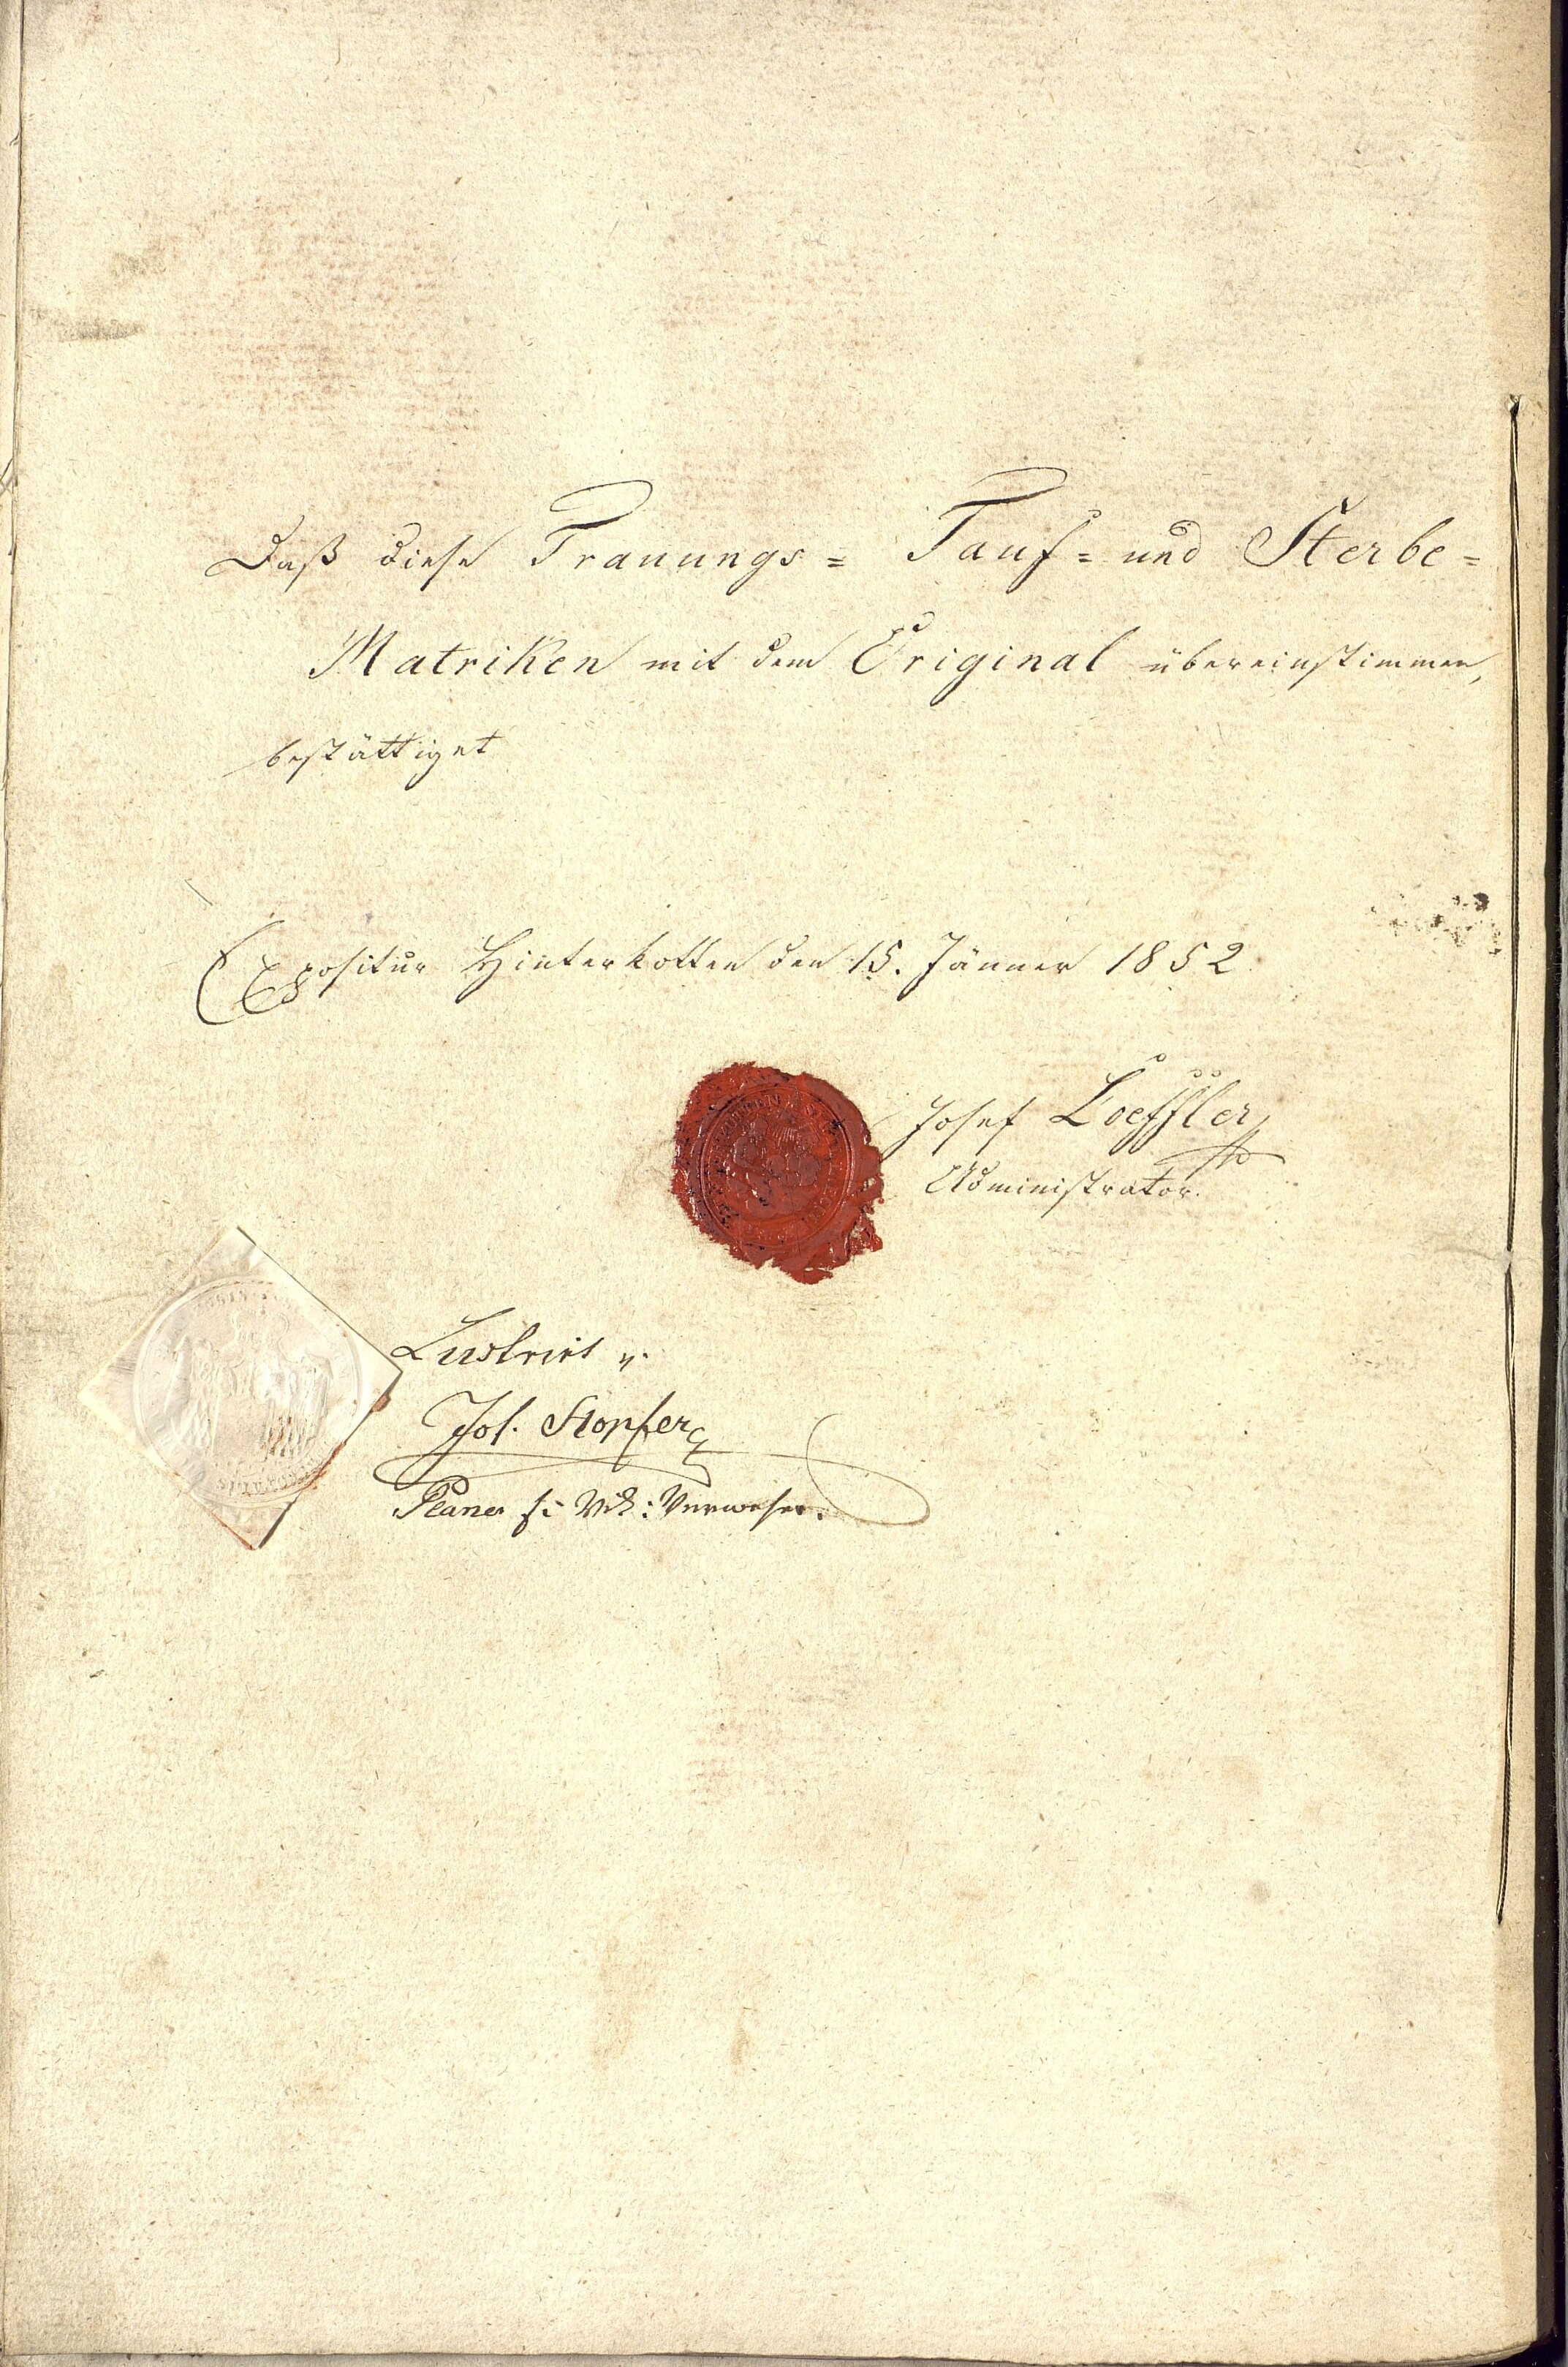 Daß diese Trauungs= Tauf= und Sterbe=
Matriken mit dem Original übereinstimmen,
bestättiget
Expositur Hinterkotten den 15. Jänner 1852
Josef Loeffler
Administrator.
Lustrirt
Jos. Stopfer
Planer Vik: Verweser.